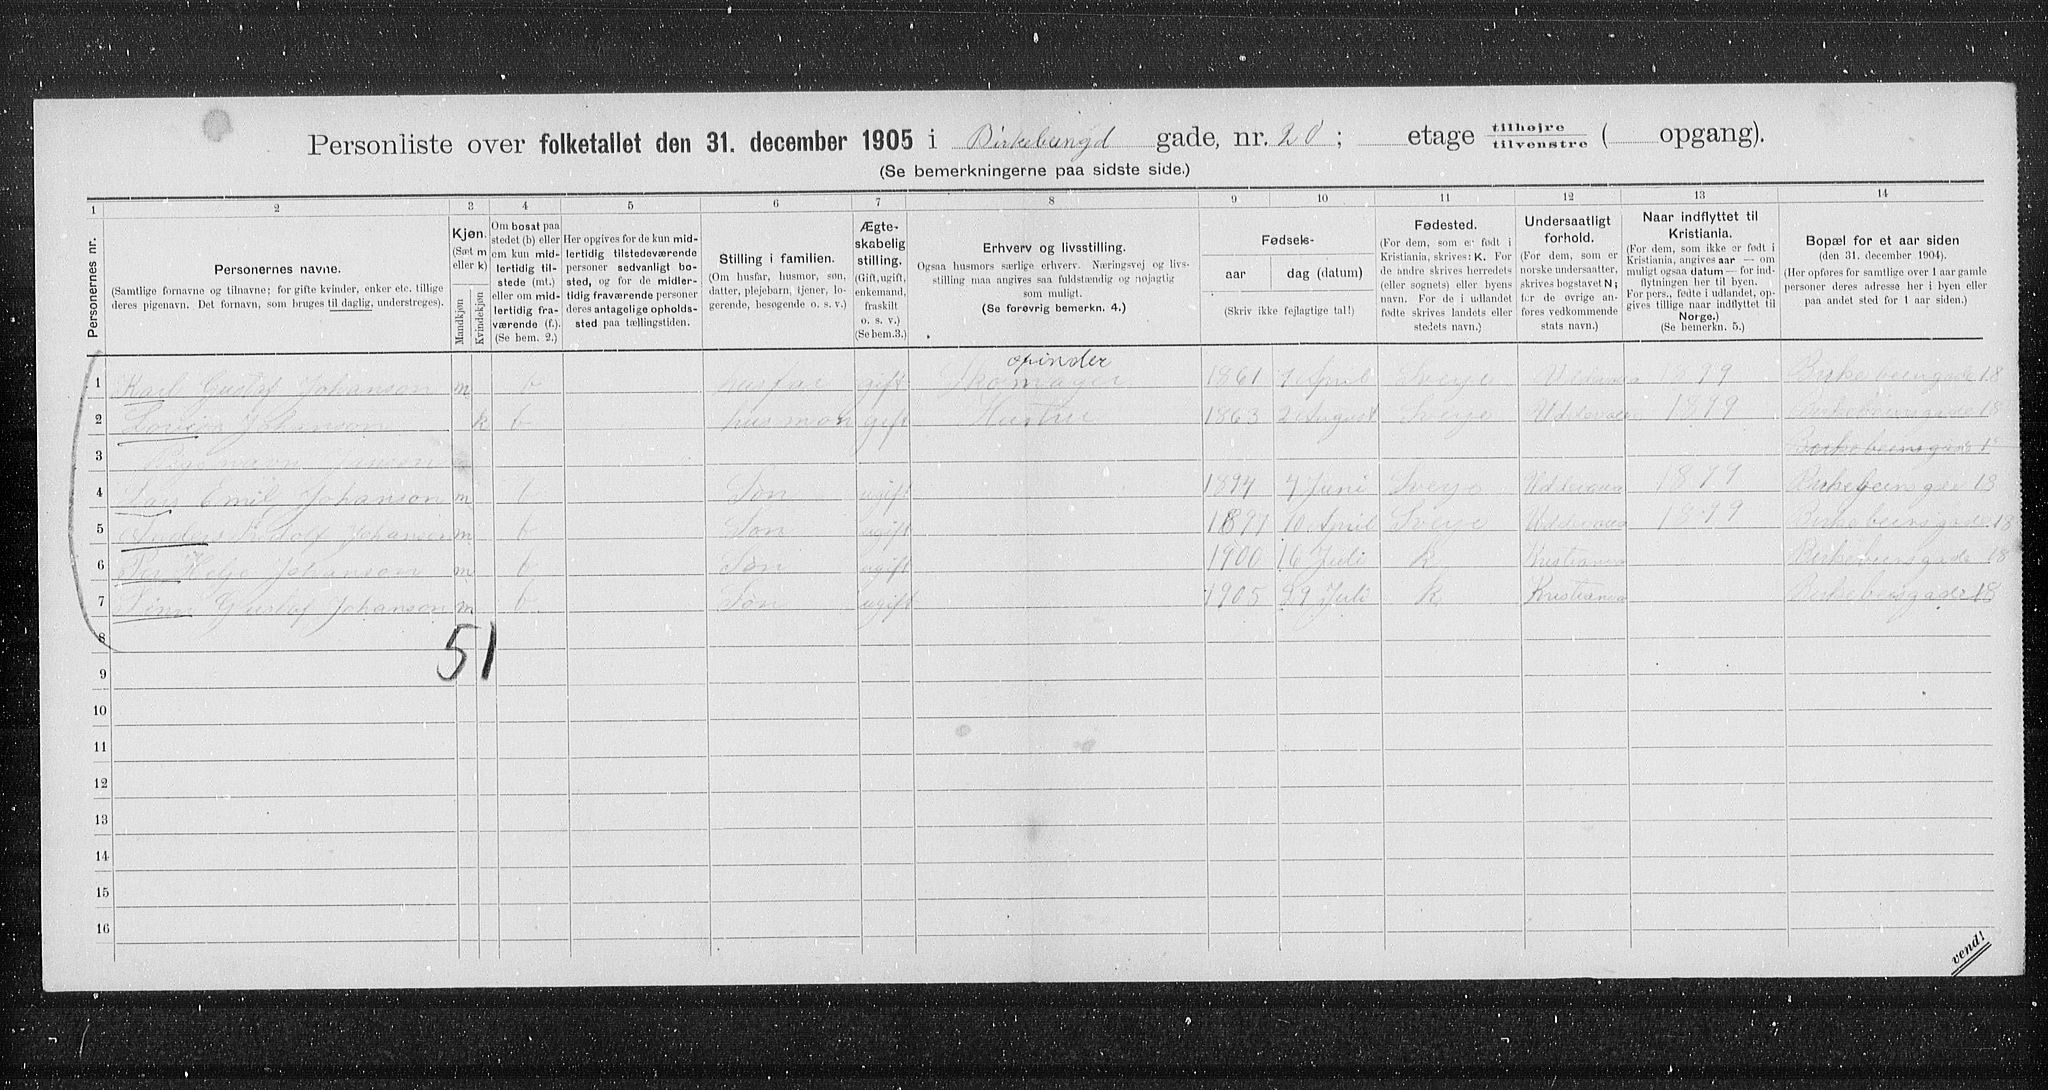 Personliste over folketallet den 31. december 1905 i Birkebungd gade, nr. 20; etage tilhøjre tilvenstre ( opgang).
(Se bemerkningerne paa sidste side.)
1 2 3 4 5 6 7 8 9 10 11 12 13 14
Personernes nr.
Personernes navne.
(Samtlige fornavne og tilnavne; for gifte kvinder, enker etc. tillige
deres pigenavn. Det fornavn, som bruges til daglig, understreges).
Kjøn.
(Sæt m
eller k)
Mandkjøn
Kvindekjøn
Om bosat paa
stedet (b) eller
om kun mid-
lertidig til-
stede (mt.)
eller om mid-
lertidig fra-
værende (f.).
(Se bem. 2.)
Her opgives for de kun mid-
lertidig tilstedeværende
personer sedvanligt bo-
sted, og for de midler-
tidig fraværende personer
deres antagelige opholds-
sted paa tællingstiden.
Stilling i familien.
(Om husfar, husmor, søn,
datter, plejebarn, tjener, lo-
gerende, besøgende o. s. v.)
Ægte-
skabelig
stilling.
(Gift, ugift,
enkemand,
fraskilt
o. s. v.)
(Se bem.3.)
Erhverv og livsstilling.
Ogsaa husmors særlige erhverv. Næringsvej og livs-
stilling maa angives saa fuldstændig og nøjagtig
som muligt.
(Se forøvrig bemerkn. 4.)
Fødsels-
aar dag (datum)
(Skriv ikke fejlagtige tal!)
Fødested.
(For dem, som er født i
Kristiania, skrives: K. For
de andre skrives herredets
(eller sognets) eller byens
navn. For de i udlandet
fødte skrives landets eller
stedets navn.)
Undersaatligt
forhold.
(For dem, som er
norske undersaatter,
skrives bogstavet N;
for de øvrige an-
føres vedkommende
stats navn.)
Naar indflyttet til
Kristiania.
(For dem, som ikke er født i
Kristiania, angives aar — om
muligt ogsaa datum — for ind-
flytningen her til byen.
For pers., fødte i udlandet, op-
gives tillige naar indflyttet til
Norge.)
(Se bemerkn. 5.)
Bopæl for et aar siden
(den 31. december 1904).
(Her opføres for samtlige over 1 aar gamle
personer deres adresse her i byen eller
paa andet sted for 1 aar siden.)
opinder
1 Karl Gustaf Johanson m b husfar gift Skomager 1861 7 April Sverje 1899 Birkebeinsgade 18
2 Lovisa Johanson k b husmoh gift Hustru 1863 2 August Sverje Uddevala 1899 Birkebeinsgade 18
3 Pigenavn Birkebeinsgade 1
4 Lars Emil Johanson m b Søn ugift 1894 4 Juni Sverje Uddevala 1899 Birkebeinsgade 18
5 Anders Rudolf Johanson m b Søn ugift 1897 10 April Sverje Uddevala 1899 Birkebeinsgade 18
6 Per Helje Johanson m b Søn ugift 1900 16 Juli K Kristiania Birkebeinsgade 18
7 Gustaf Johanson m b Søn ugift 1905 29 Juli K Kristiania Birkebeinsgade 18
8
51
9
10
11
12
13
14
15
16
vend!